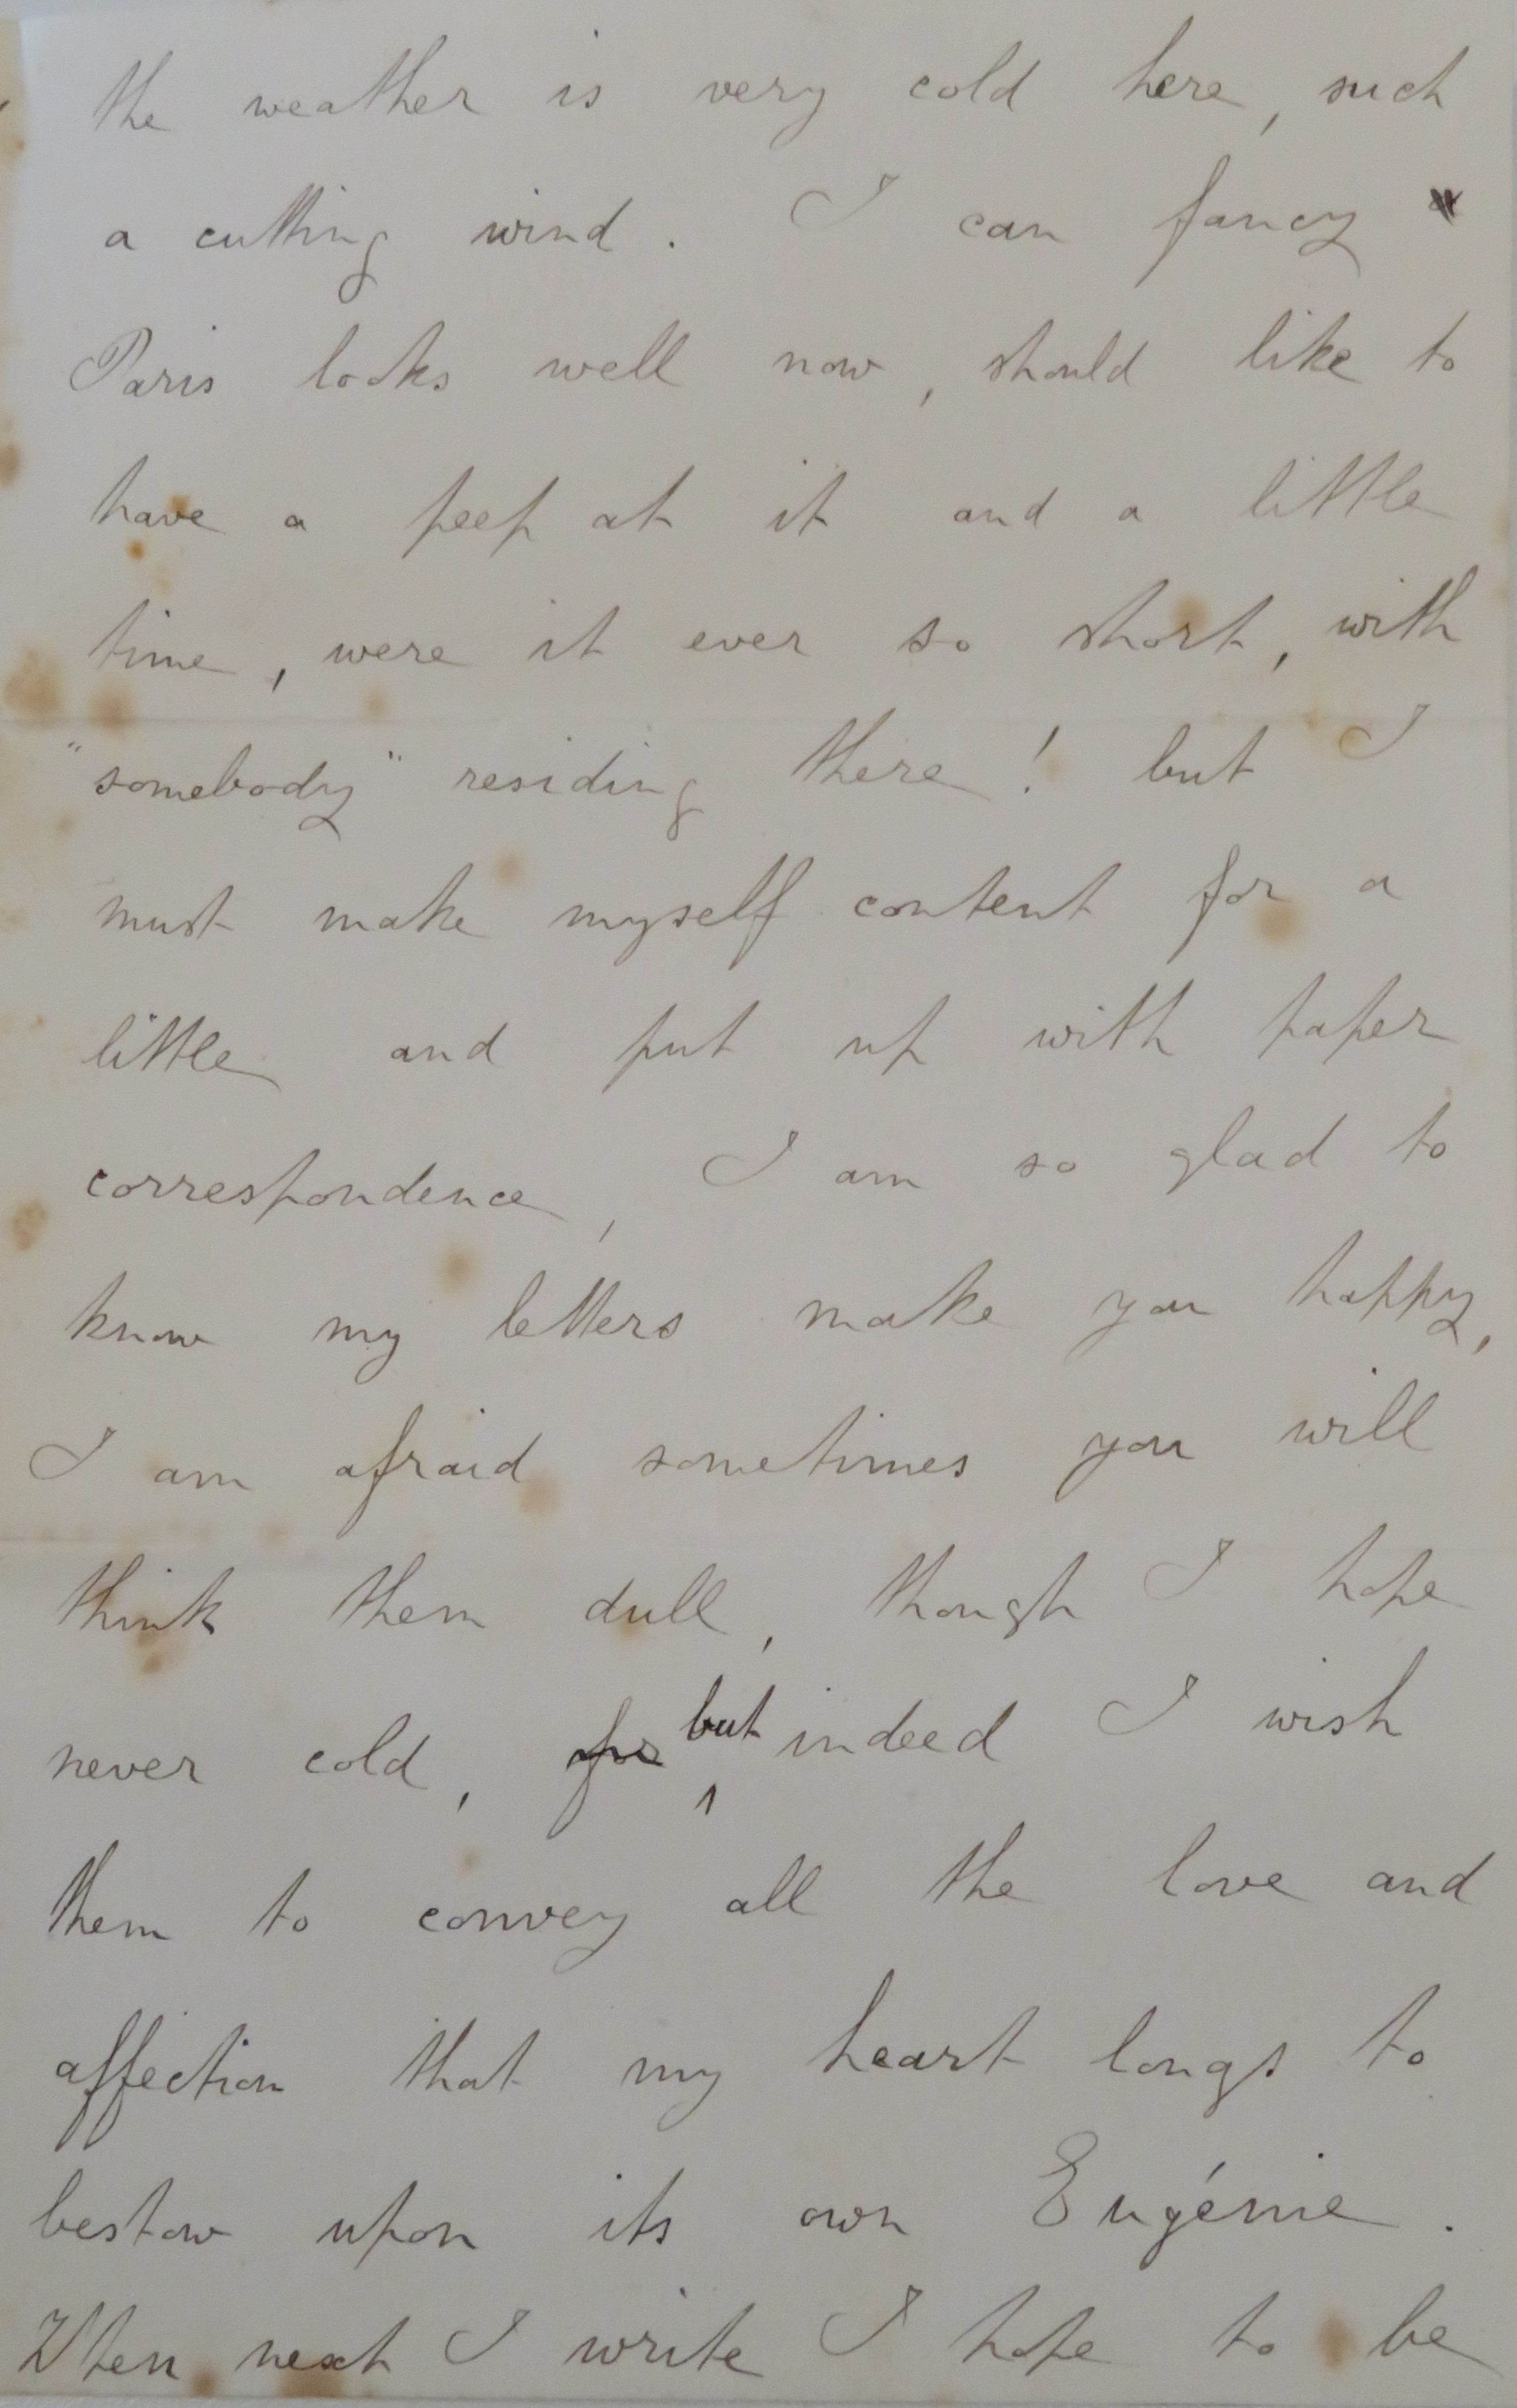 the weather is very cold here, such
a cutting wind. I can fancy
Paris looks well now, should like to
have a peep at it and a little
time, were it ever so short, with
"somebody" residing there! but I
must make myself content for a
little and put up with paper
correspondence, I am so glad to
know my letters make you happy,
I am afraid sometimes you will
think them dull, though I hope
never cold, for but indeed I wish
them to convey all the love and
affection that my heart longs to
bestow upon its own Eugénie.
When next I write I hope to be